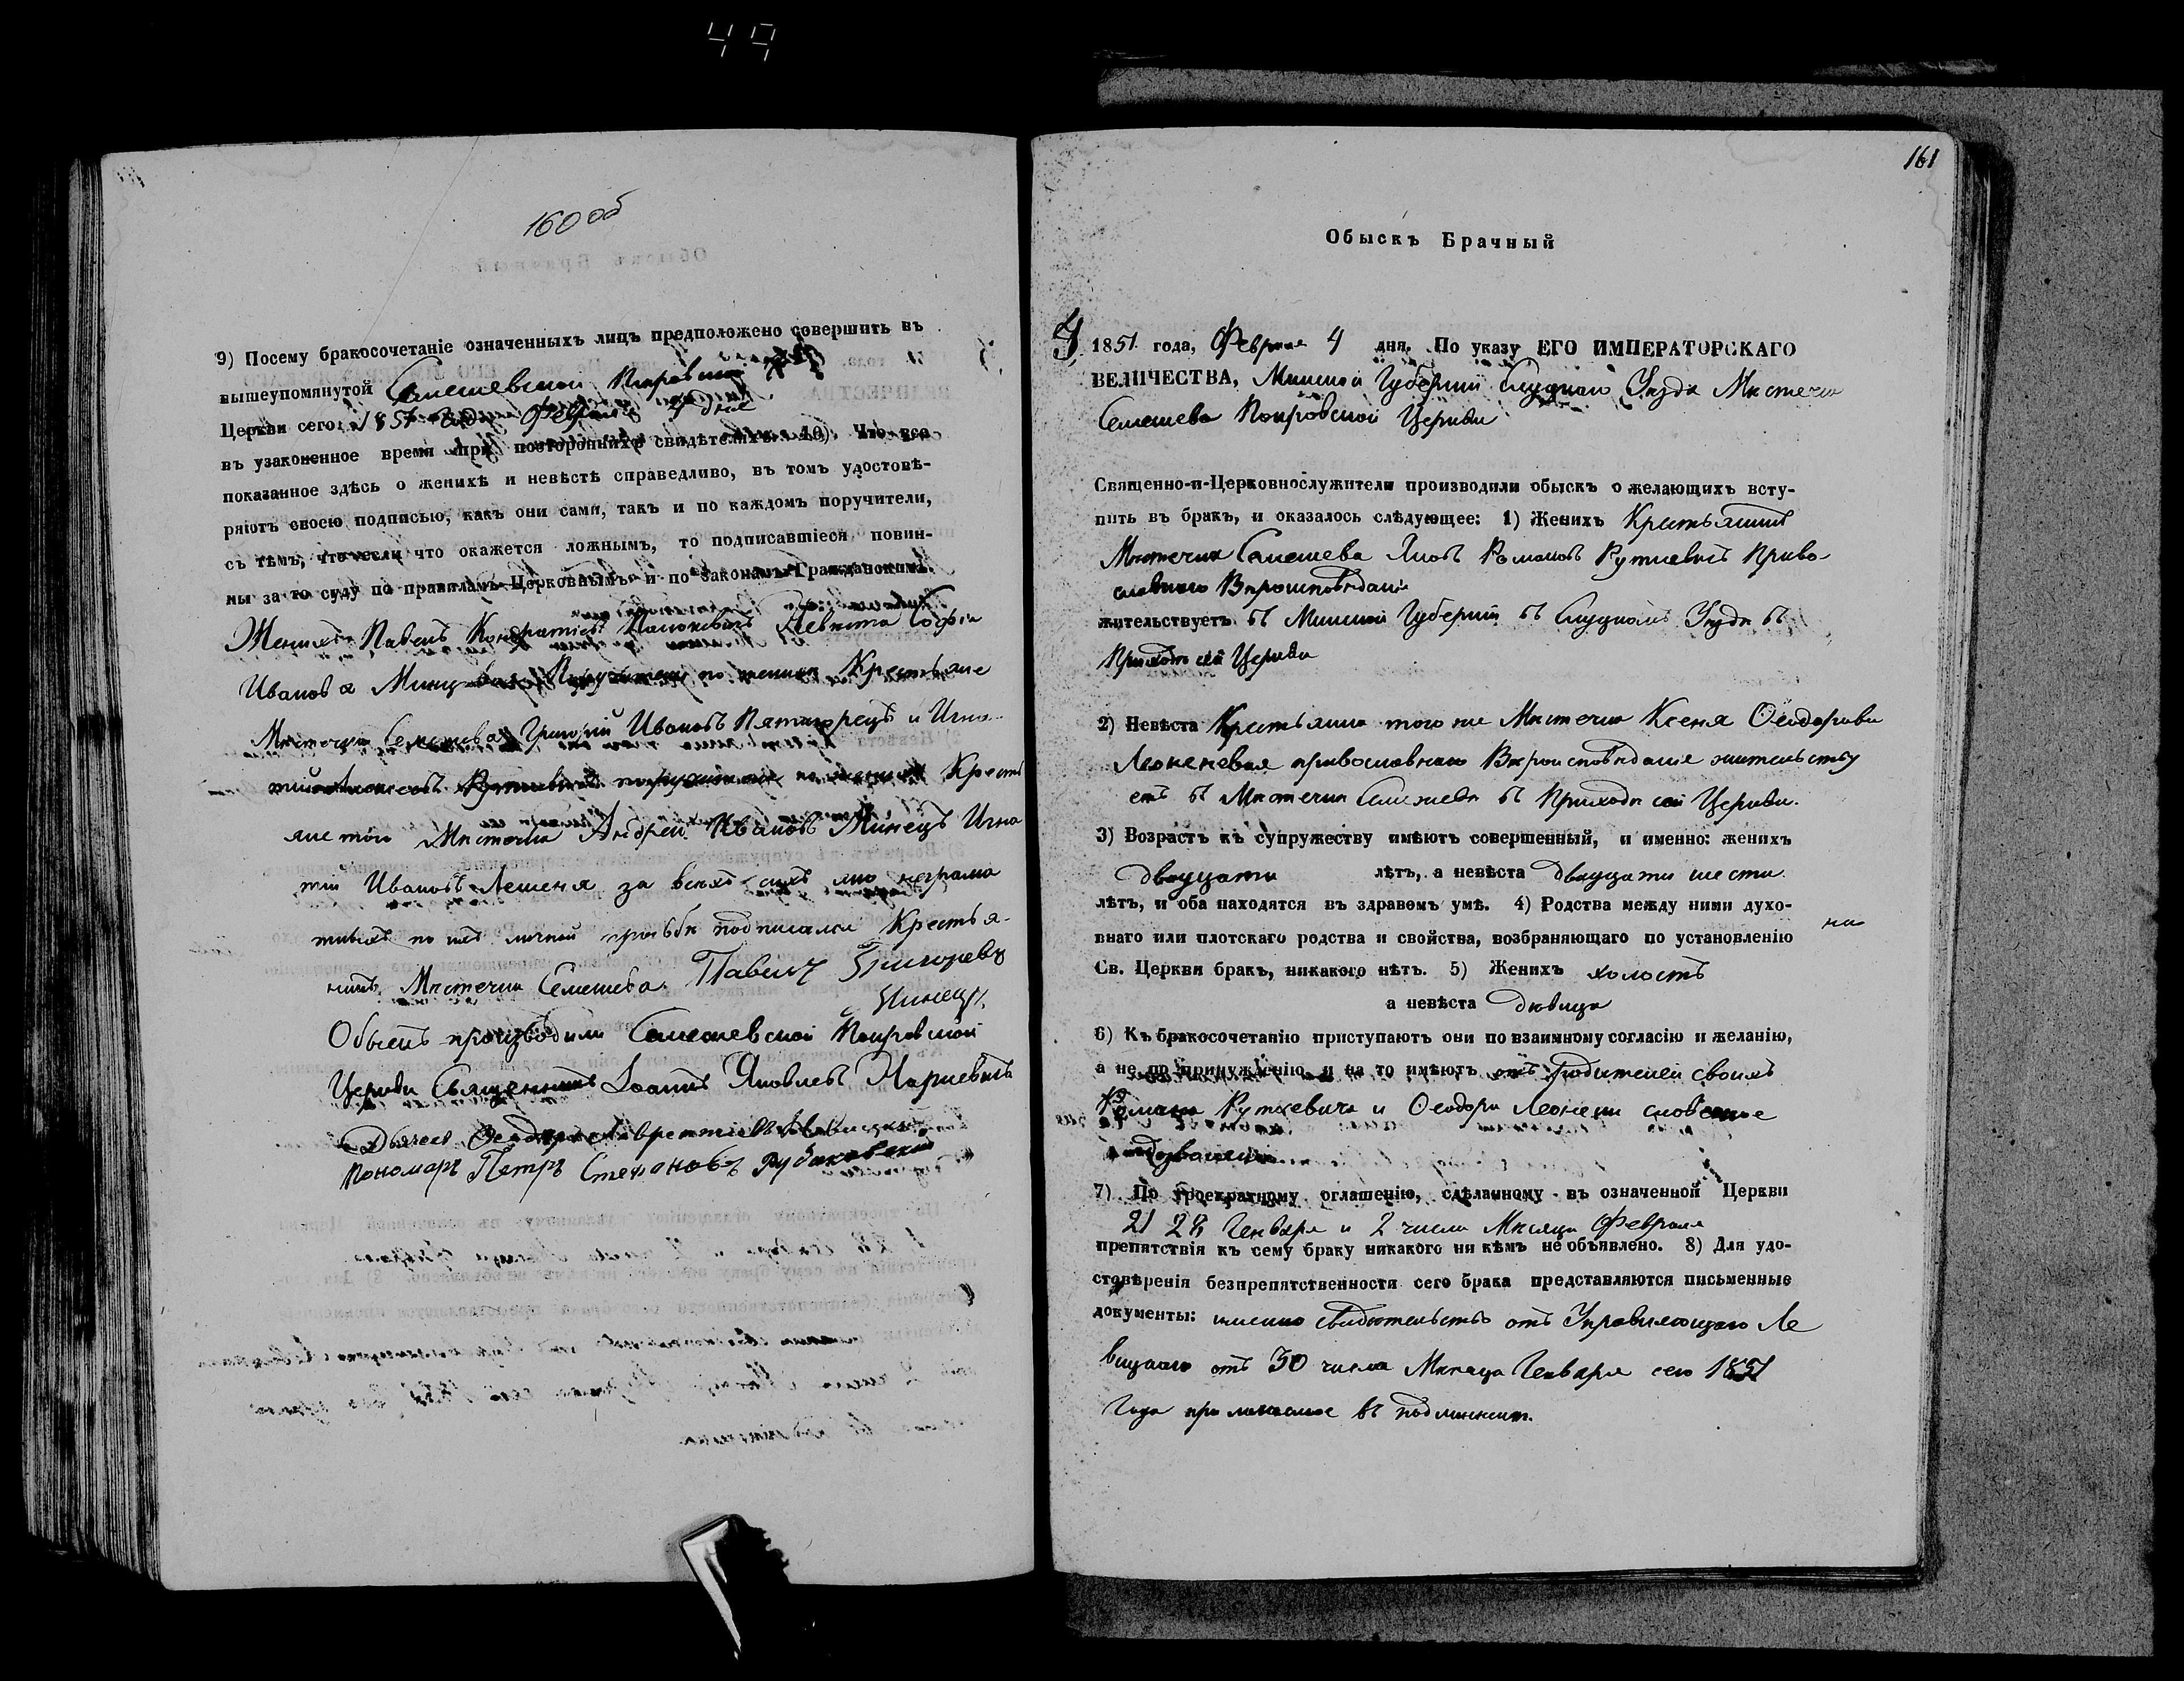 49
160 об
9) Посему бракосочетаніе означенныхъ лицъ предположено совершить въ
вышеупомянутой Семежевской Покровской
Церкви сего 1851 года Февраля 4 дня
въ узаконенное время при постороннихъ свидѣтеляхъ. 10) Что все
показанное здѣсь о женихѣ и невѣстѣ справедливо, въ томъ удостовѣ-
ряютъ своею подписью, какъ они сами, такъ и по каждомъ поручители,
съ тѣмъ, что если что окажется ложнымъ, то подписавшіеся повин-
ны за то суду по правиламъ Церковнымъ и по законамъ Гражданскимъ.
Женихъ Павелъ Кондратіевъ Невѣста Софія
Иванова по женихѣ Крестьяне
Мѣстечка Семежева Григорій Ивановъ Пятигорецъ и Игна-
тій поручители по невѣстѣ Кресть
яне того Мѣстечка Андрей Ивановъ Минецъ Игна
тій Ивановъ Лешеня за всѣхъ сихъ яко неграмо
тныхъ по ихъ личной прозьбѣ подписался Крестья-
нинъ Мѣстечка Семежева Павелъ Григоревъ
Минецъ
Обыскъ производили Семежевской Покровской
Церкви Священникъ Іоаннъ Яковлевъ
Дьячекъ Ѳеодоръ Лаврентіевъ
Пономарь Петръ Степановъ Рубановскій
161
Обыскъ Брачный
7 1851 года, Февраля 4 дня. По указу ЕГО ИМПЕРАТОРСКАГО
ВЕЛИЧЕСТВА, Минской Губерніи Слуцкаго Уѣзда Мѣстечка
Семежева Покровской Церкви
Священно-и-Церковнослужители производили обыскъ о желающихъ всту-
пить въ бракъ, и оказалось слѣдующее: 1) Женихъ Крестьянинъ
Мѣстечка Семежева Яковъ Романовъ Руткевичъ Право-
славнаго Вѣроисповѣданія
жительствуетъ въ Минской Губерніи въ Слуцкомъ Уѣздѣ въ
Приходѣ сей Церкви
2) Невѣста Крестьянка того же Мѣстечка Ксенія Ѳеодорова
православнаго Вѣроисповѣданія жительству
етъ въ Мѣстечкѣ Семежевѣ въ Приходѣ сей Церкви.
3) Возрастъ къ супружеству имѣютъ совершенный, и именно: женихъ
двадцати лѣтъ, а невѣста двадцати шести
лѣтъ, и оба находятся въ здравомъ умѣ. 4) Родства между ними духо-
внаго или плотскаго родства и свойства, возбраняющаго по установленію
Св. Церкви бракъ, никакого нѣтъ. 5) Женихъ холостъ
а невѣста дѣвица
6) Къ бракосочетанію приступаютъ они по взаимному согласію и желанію,
а не по принужденію, и на то имѣютъ отъ Родителей своихъ
Романа Руткевича и Ѳеодора словесное
дозволеніе
7) По троекратному оглашенію, сдѣланному въ означенной Церкви
21 28 Генваря и 2 числа Мѣсяца Февраля
препятствія къ сему браку никакого ни кѣмъ не объявлено. 8) Для удо-
стовѣренія безпрепятственности сего брака представляются письменные
документы: именно свидѣтельство отъ Управляющаго Ле
вицкаго отъ 30 числа Мѣсяца Генваря сего 1851
Года прилагаемое въ подлинникѣ.